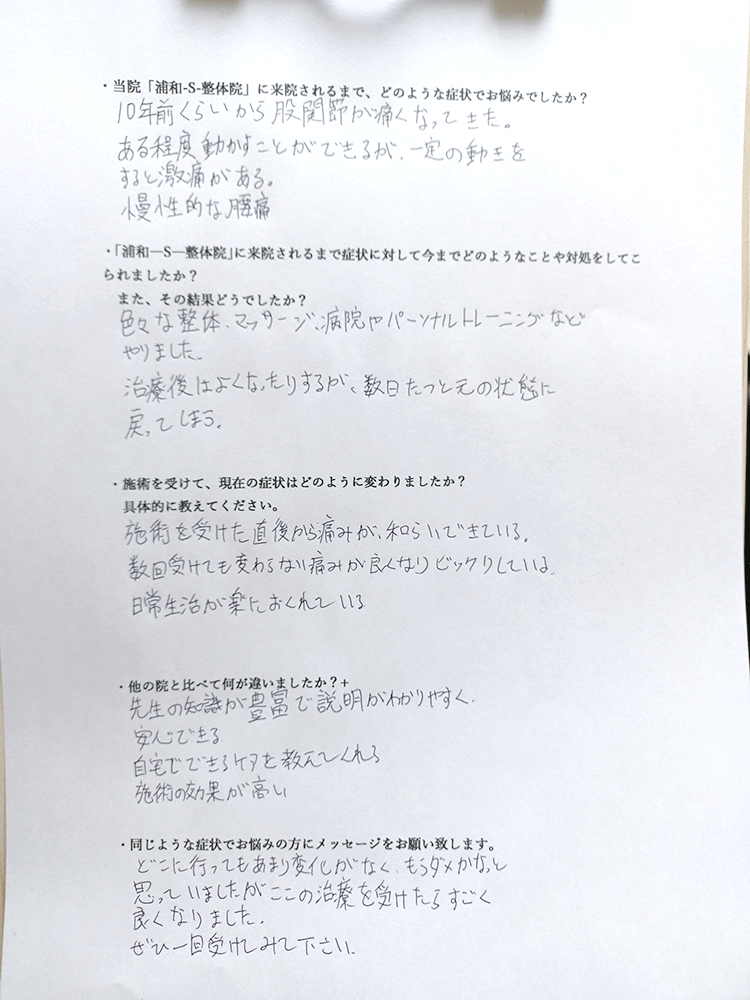 ・当院「浦和-S-整体院」に来院されるまで、どのような症状でお悩みでしたか？
10年前くらいから股関節が痛くなってきた。
ある程度動かすことができるが、一定の動きを
すると激痛がある。
慢性的な腰痛
・「浦和―S―整体院」に来院されるまで症状に対して今までどのようなことや対処をしてこ
られましたか？
また、その結果どうでしたか？
色々な整体、マッサージ、病院やパーソナルトレーニングなど
やりました。
治療後はよくなったりするが、数日たつと元の状態に
戻ってしまう。
・施術を受けて、現在の症状はどのように変わりましたか？
具体的に教えてください。
施術を受けた直後から痛みが、和らいできている。
数回受けても変わらない痛みが良くなりビックリしている
日常生活が楽におくれている
・他の院と比べて何が違いましたか？+
先生の知識が豊富で説明がわかりやすく、
安心できる
自宅でできるケアを教えてくれる
施術の効果が高い
・同じような症状でお悩みの方にメッセージをお願い致します。
どこに行ってもあまり変化がなく、もうダメかなっと
思っていましたがここの治療を受けたらすごく
良くなりました。
ぜひ一回受けてみて下さい。